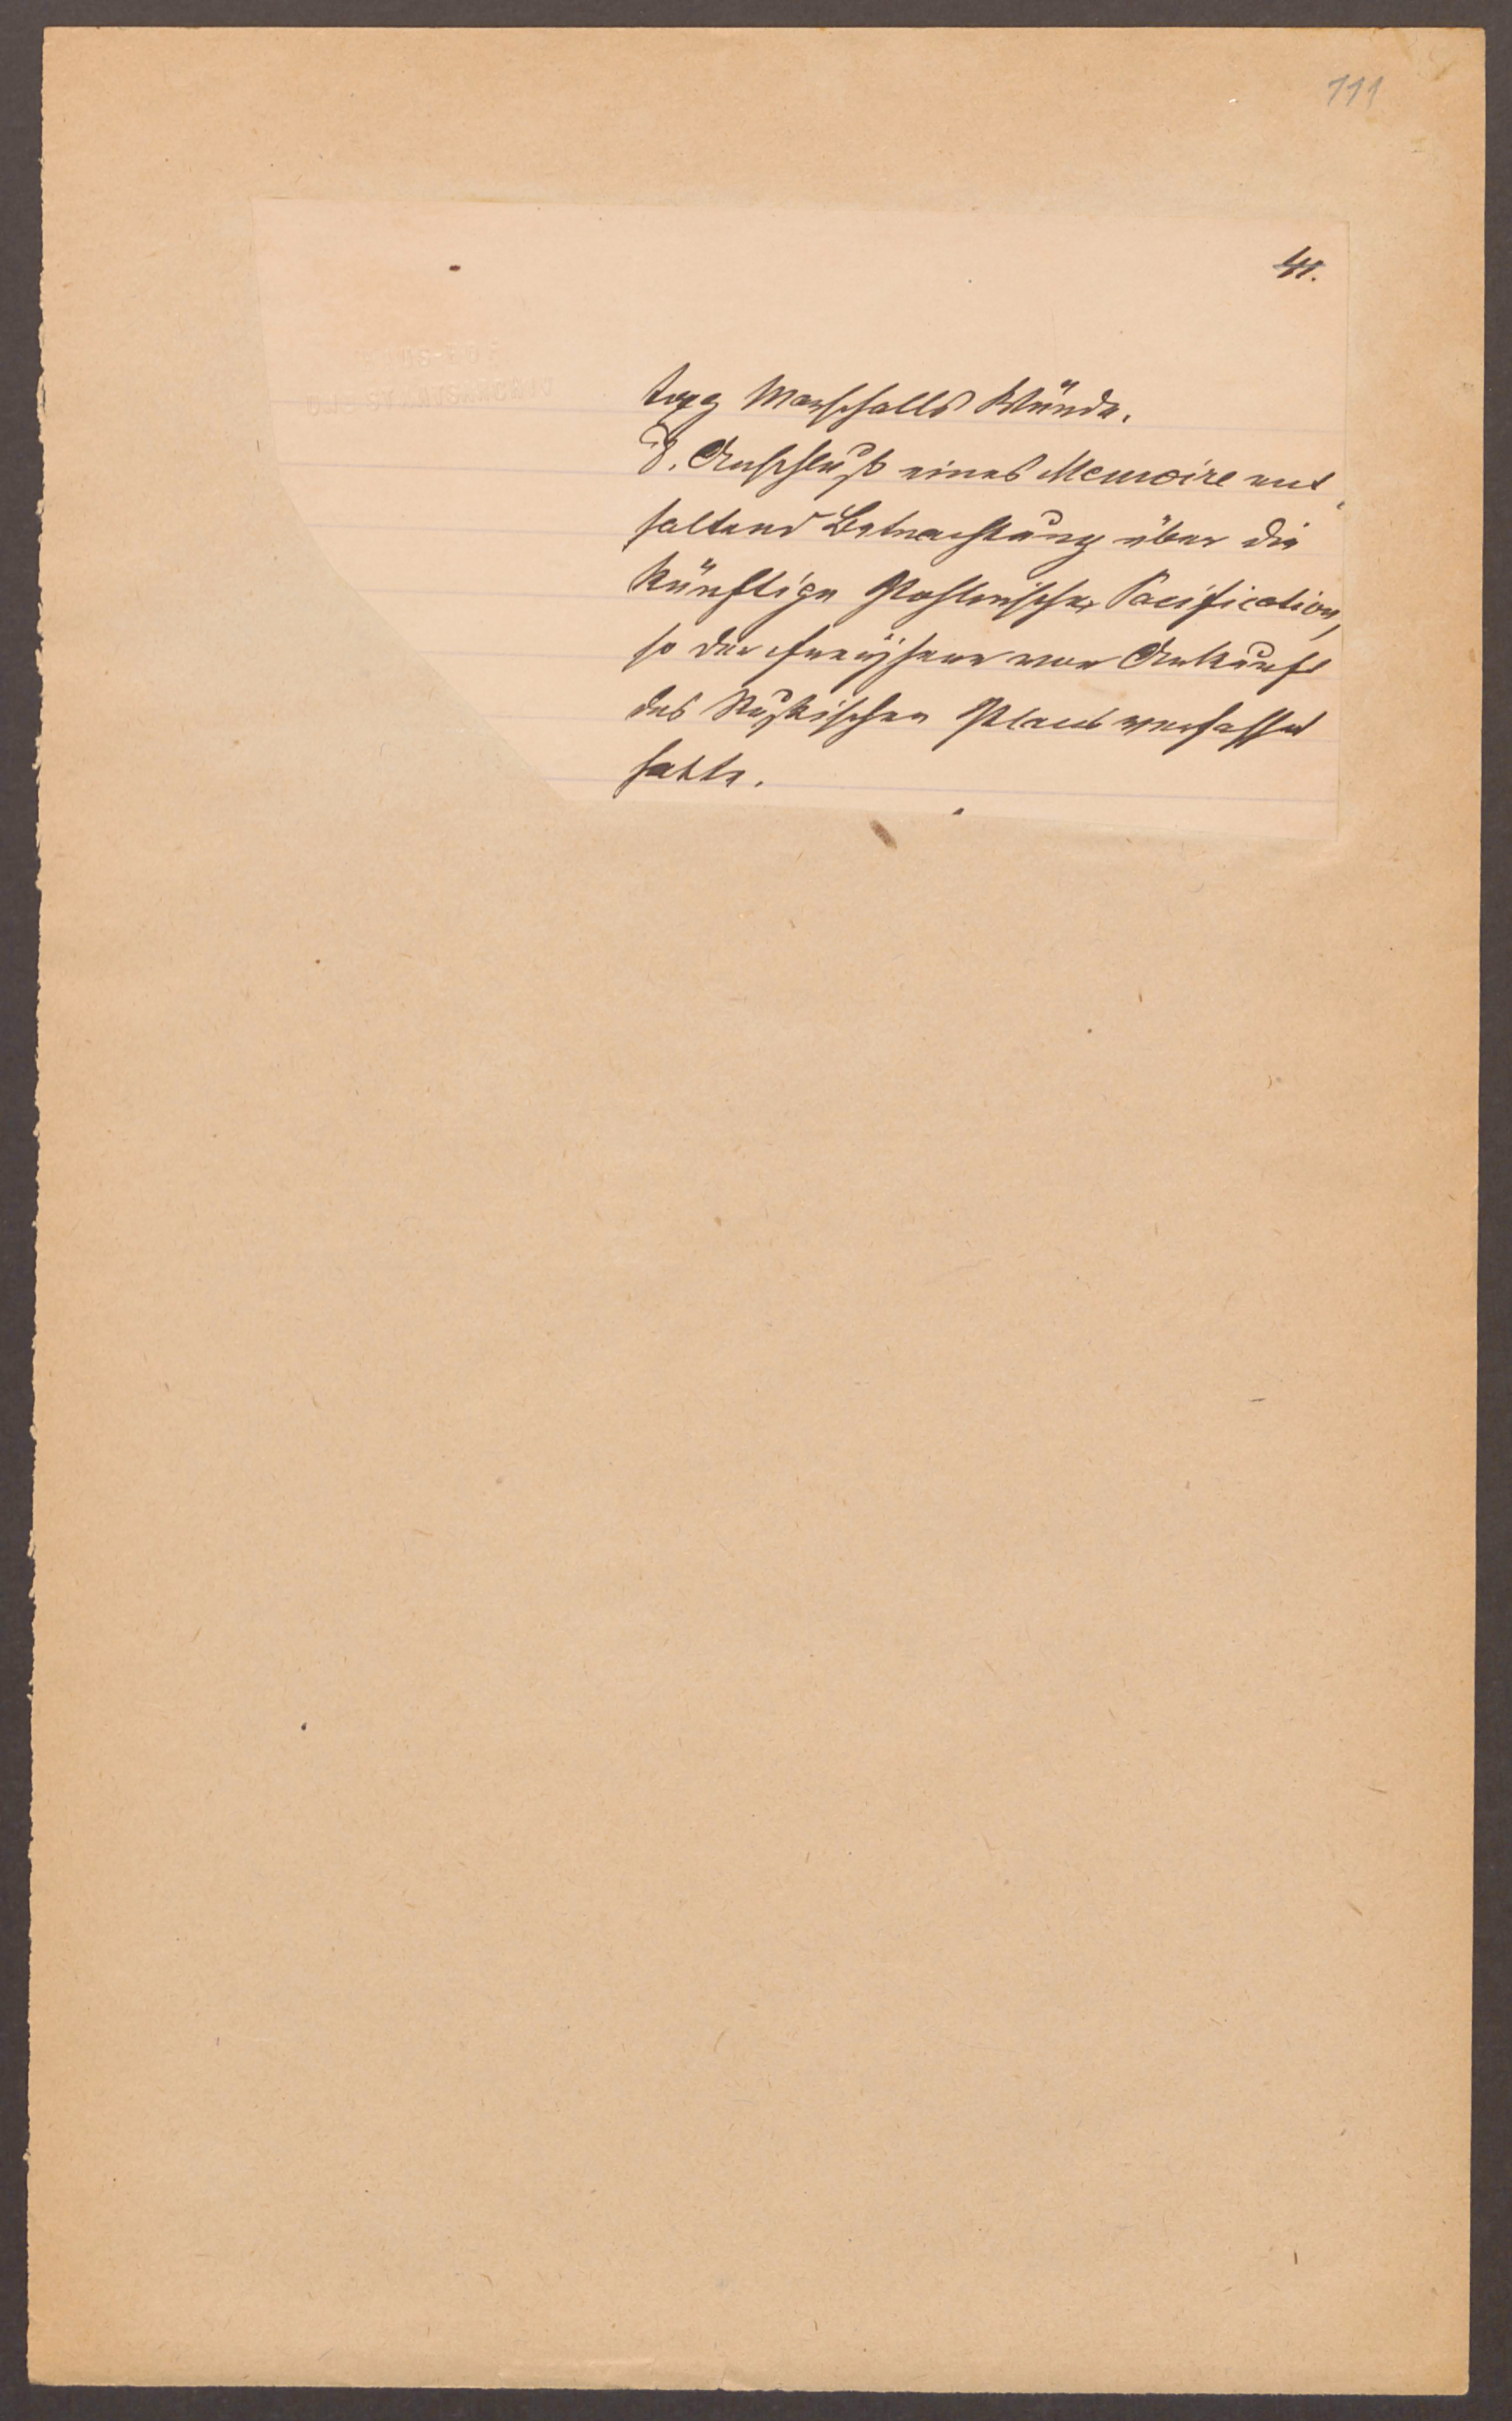 111
41.
tags Marschalls Würde.
8. Anschluß eines Memoire ent
haltend Betrachtung über die
künftige Pohlnische Pacification,
so der vor Ankunft
des Rußischen Plans verfasset
hatte.